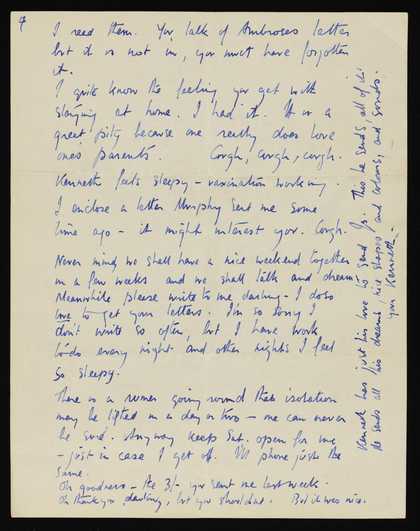 4
I read them. You talk of Ambroses letter
but it is not in, you must have forgotten
it.
I quite know the feeling you get with
staying at home. I had it. It is a
great pity because one really does love
ones parents. Cough, cough, cough.
Kenneth feels sleepy - vaccination working.
I enclose a letter Murphy sent me some
time ago - it might interest you. Cough.
Never mind, we shall have a nice weekend together
in a few weeks and we shall talk and dream
Meanwhile please write to me, darling - I do so
love to get your letters. I'm so sorry I
don't write so often, but I have work
to do every night and other nights I feel
so sleepy.
There is a rumer going round that isolation
may be lifted in a day or two - one can never
be sure. Anyway keep Sat. open for me
- just in case I get off. I'll phone just the
same.
Oh goodness - the 3/- you sent me last week.
Oh thank you, darling, but you shouldnt. But it was nice.
Kenneth has just his love to send you. This he sends all of it.
He sends all his dreams, nice shapes and colours, and sounds.
your Kenneth.